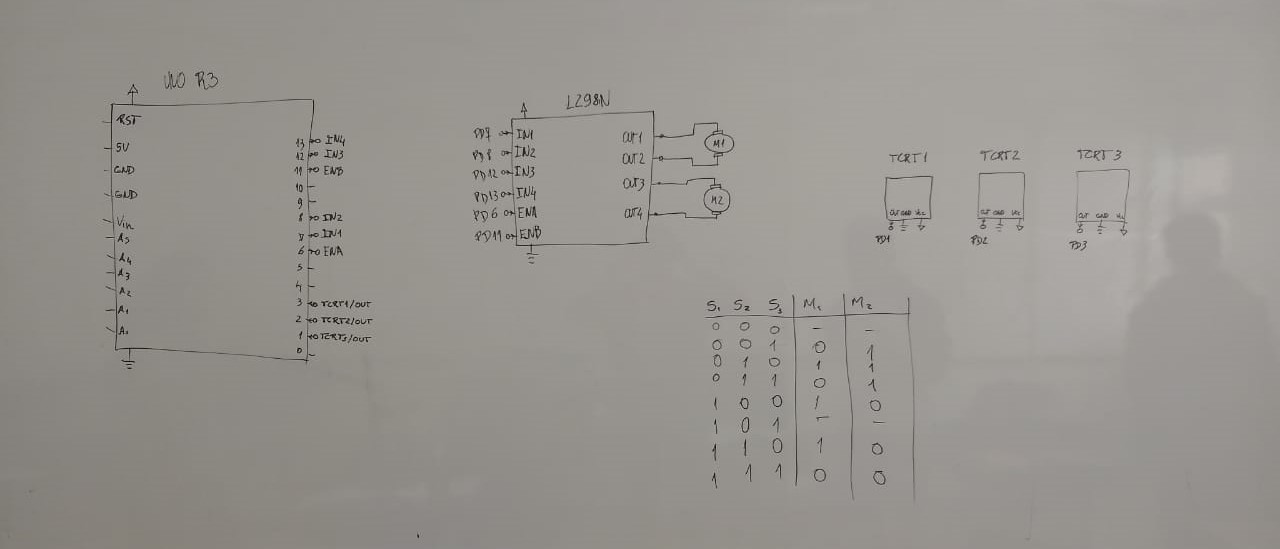 UNO R3
RST
5V
GND
GND
Vin
A5
A4
A3
A2
A1
A0
13 IN4
12 IN3
11 ENB
10
9
8 IN2
7 IN1
6 ENA
5
4
3 TCRT1/OUT
2 TCRT2/OUT
1 TCRT3/OUT
0
L298N
PD7 IN1
PD8 IN2
PD12 IN3
PD13 IN4
PD6 ENA
PD11 ENB
OUT1
OUT2
OUT3
OUT4
M1
M2
TCRT1
OUT GND Vcc
PD1
TCRT2
OUT GND Vcc
PD2
TCRT3
OUT GND Vcc
PD3
S1 S2 S3 M1 M2
0 0 0 - -
0 0 1 0 1
0 1 0 1 1
0 1 1 0 1
1 0 0 1 0
1 0 1 - -
1 1 0 1 0
1 1 1 0 0